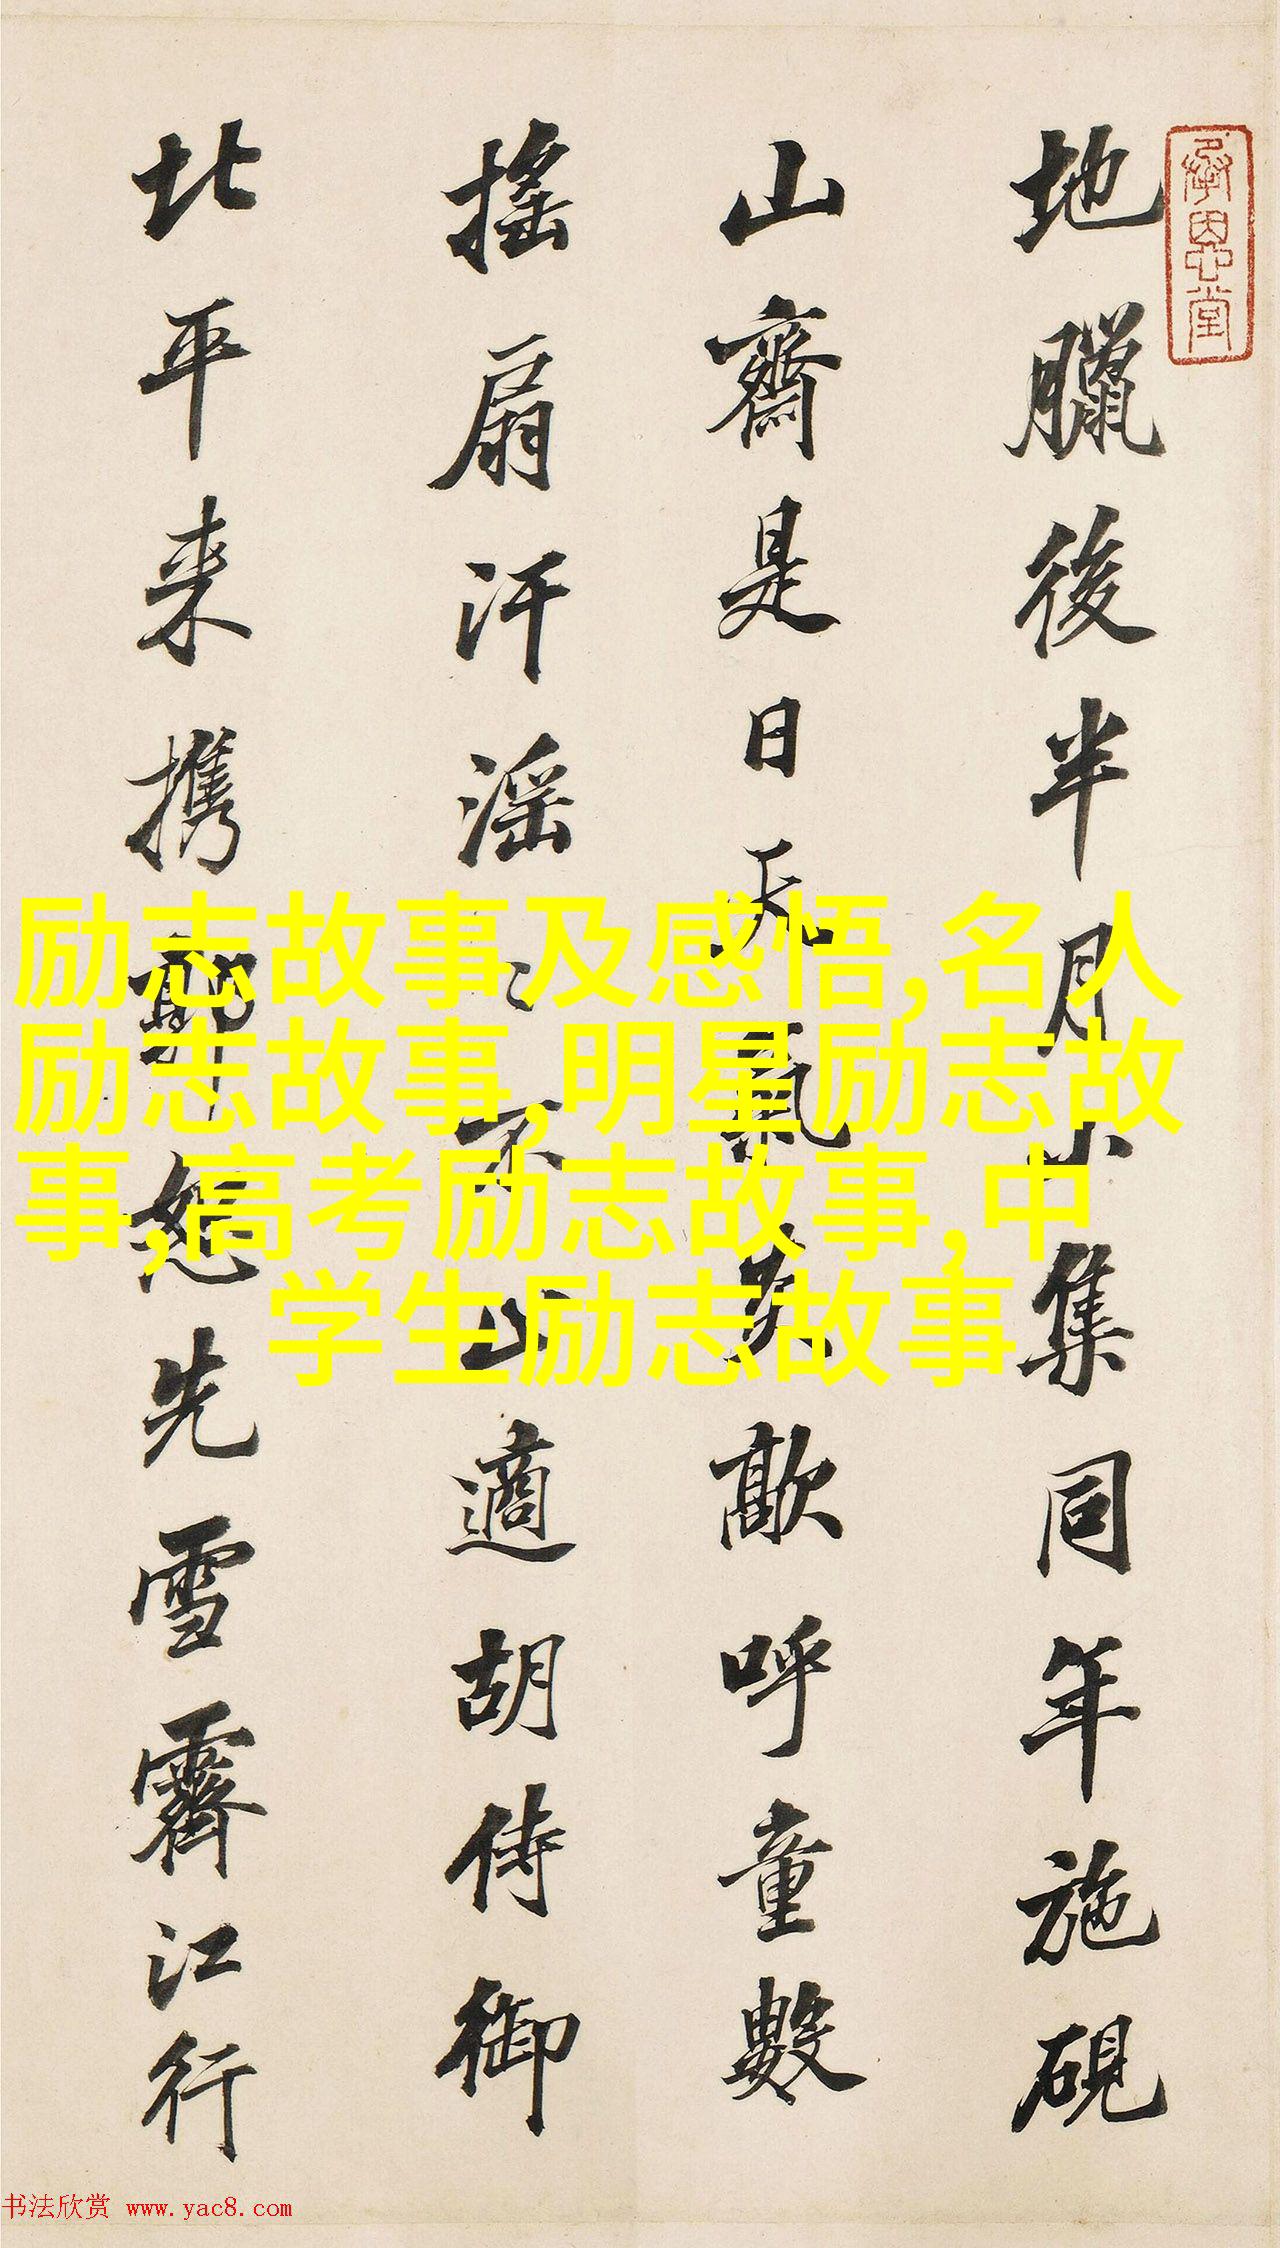 承恩堂
地臘後半月小集同年施硯
山齋是日天氣炎歊呼童數
搖扇汗滛〻不止適胡侍御
北平来攜鄭恕先雪霽江行
励志故事及感悟,名人
励志故事,明星励志故
事,高考励志故事,中
学生励志故事
书法欣赏 www.yac8.com